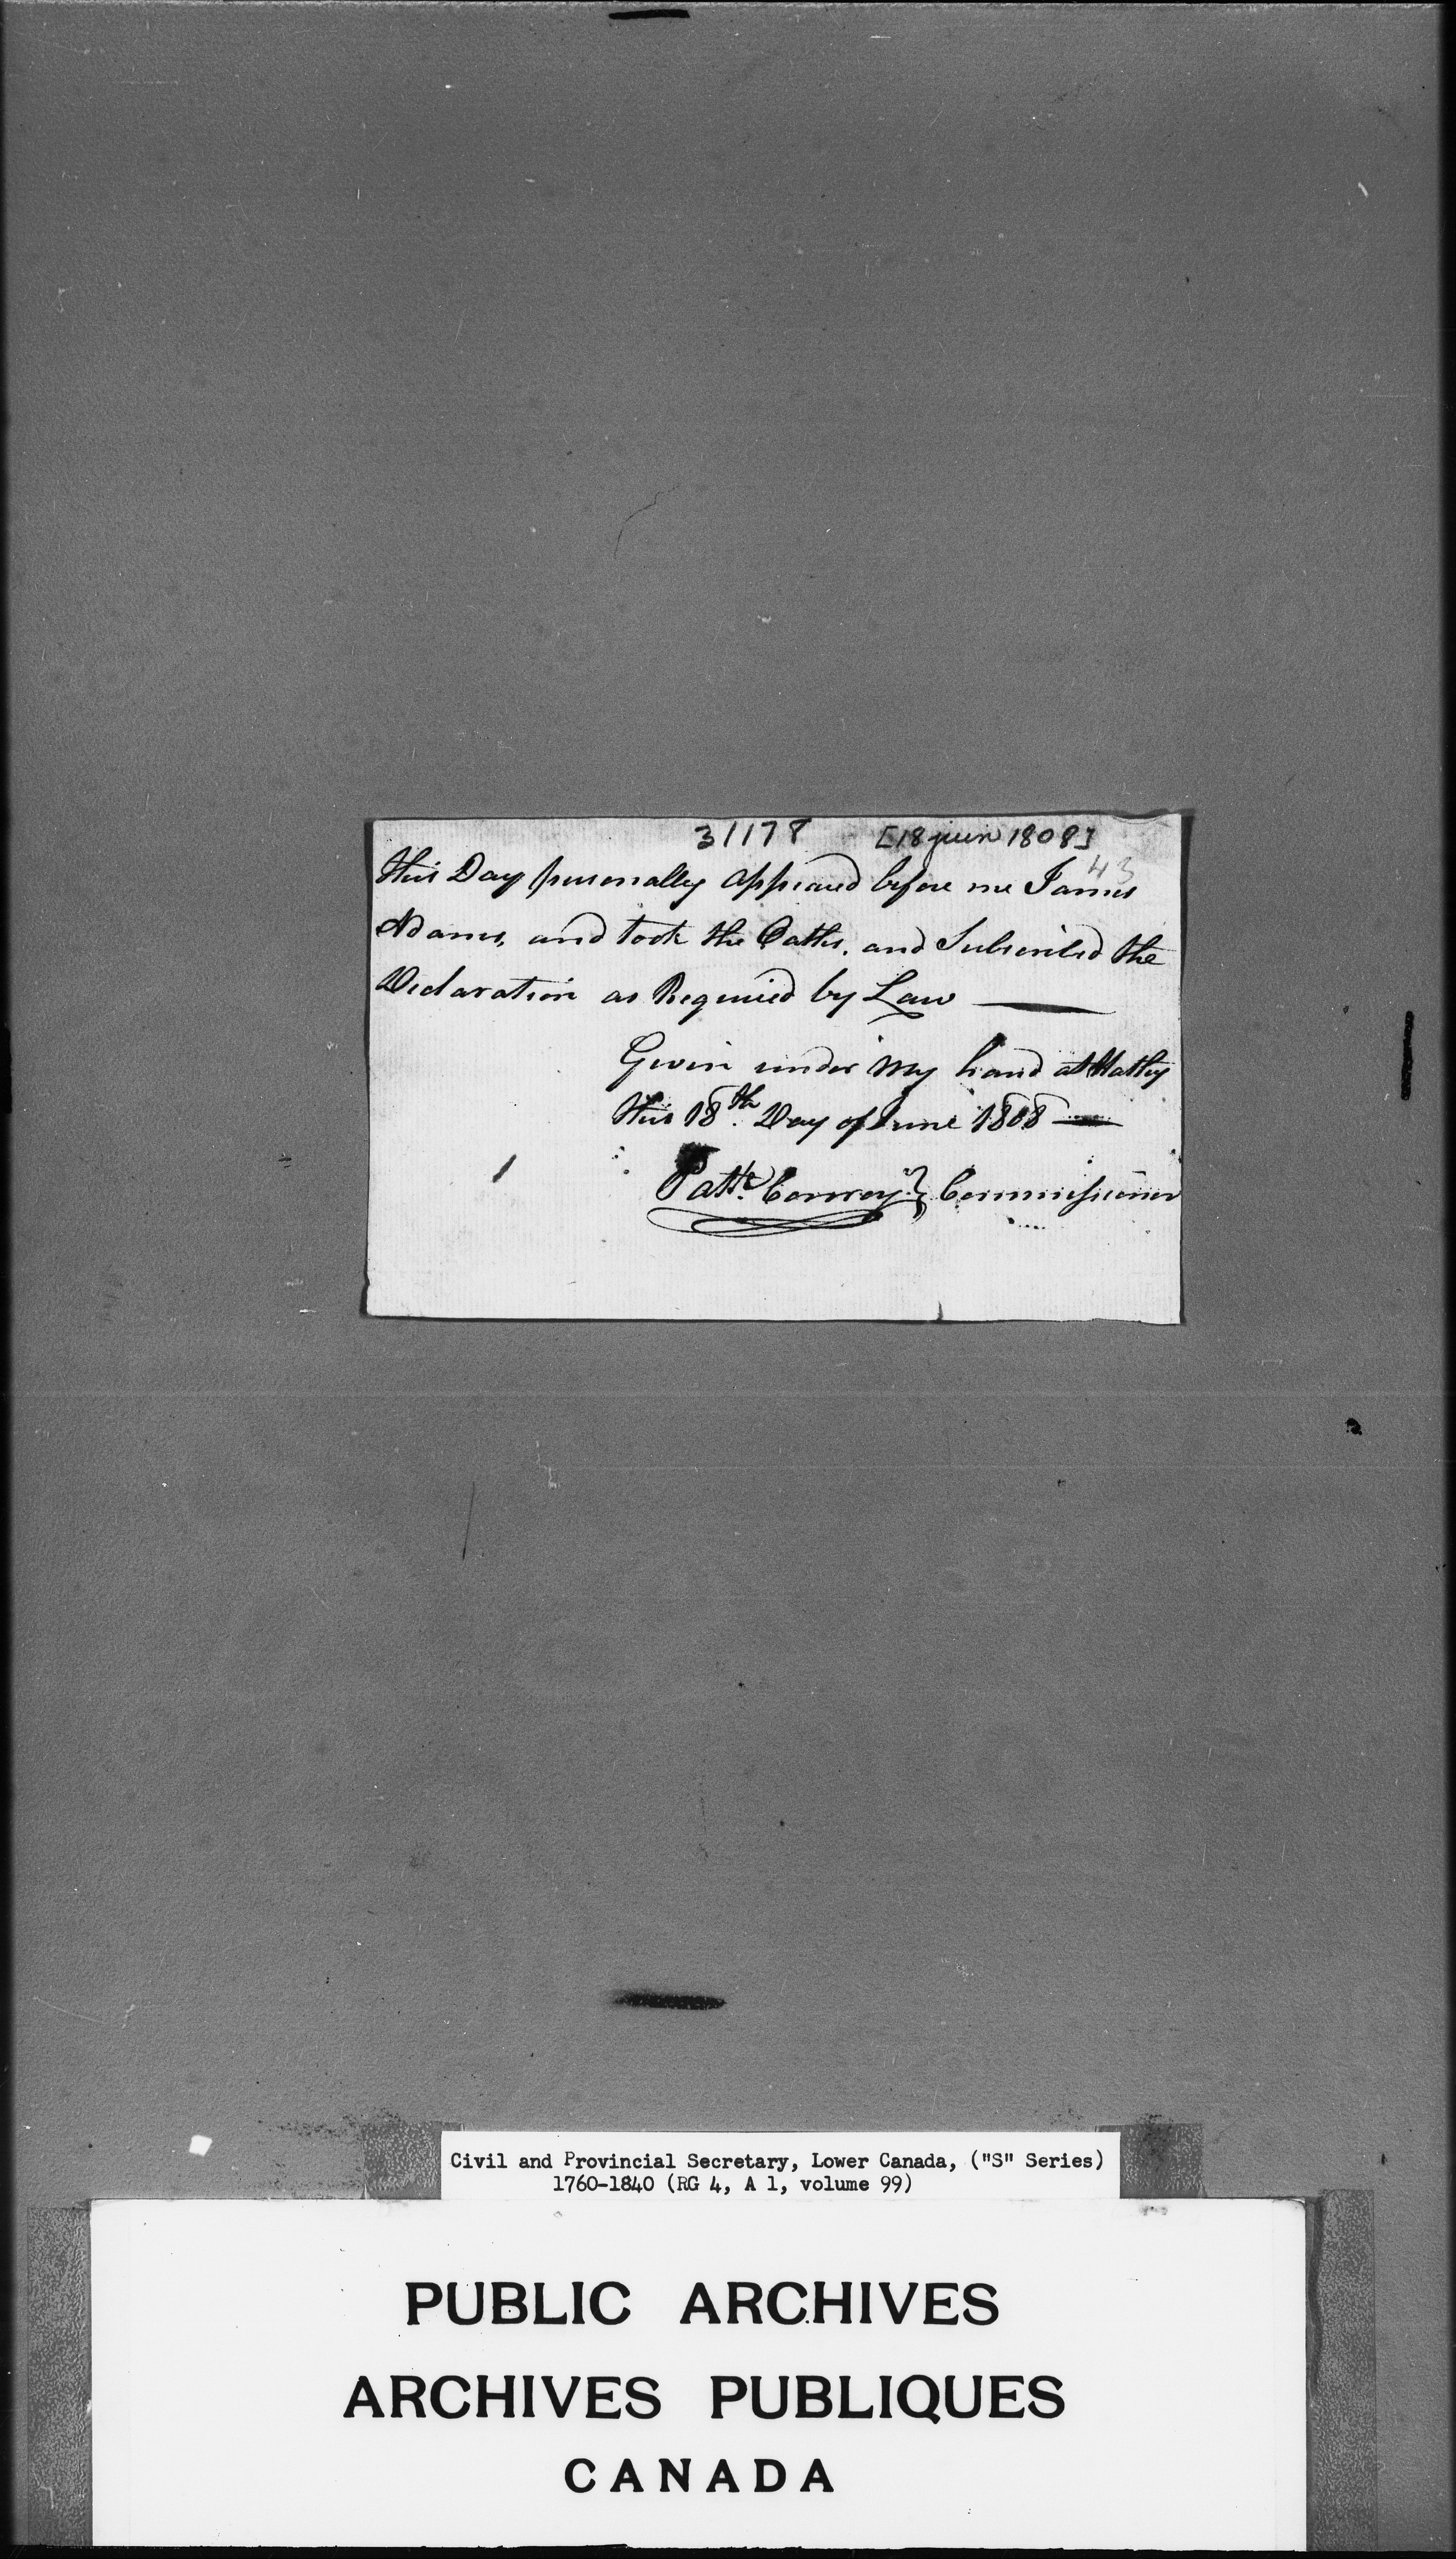 31178 [18 juin 1808]
43
this Day personally appeared before me James
Adams, and took the Oaths, and Subscribed the
Declaration as Required by Law
Given under my hand at Hatley
this 18th. Day of June 1808
Patk. Conroy } Commissioner
Civil and Provincial Secretary, Lower Canada, ("S" Series)
1760-1840 (RG 4, A 1, volume 99)
PUBLIC ARCHIVES
ARCHIVES PUBLIQUES
CANADA